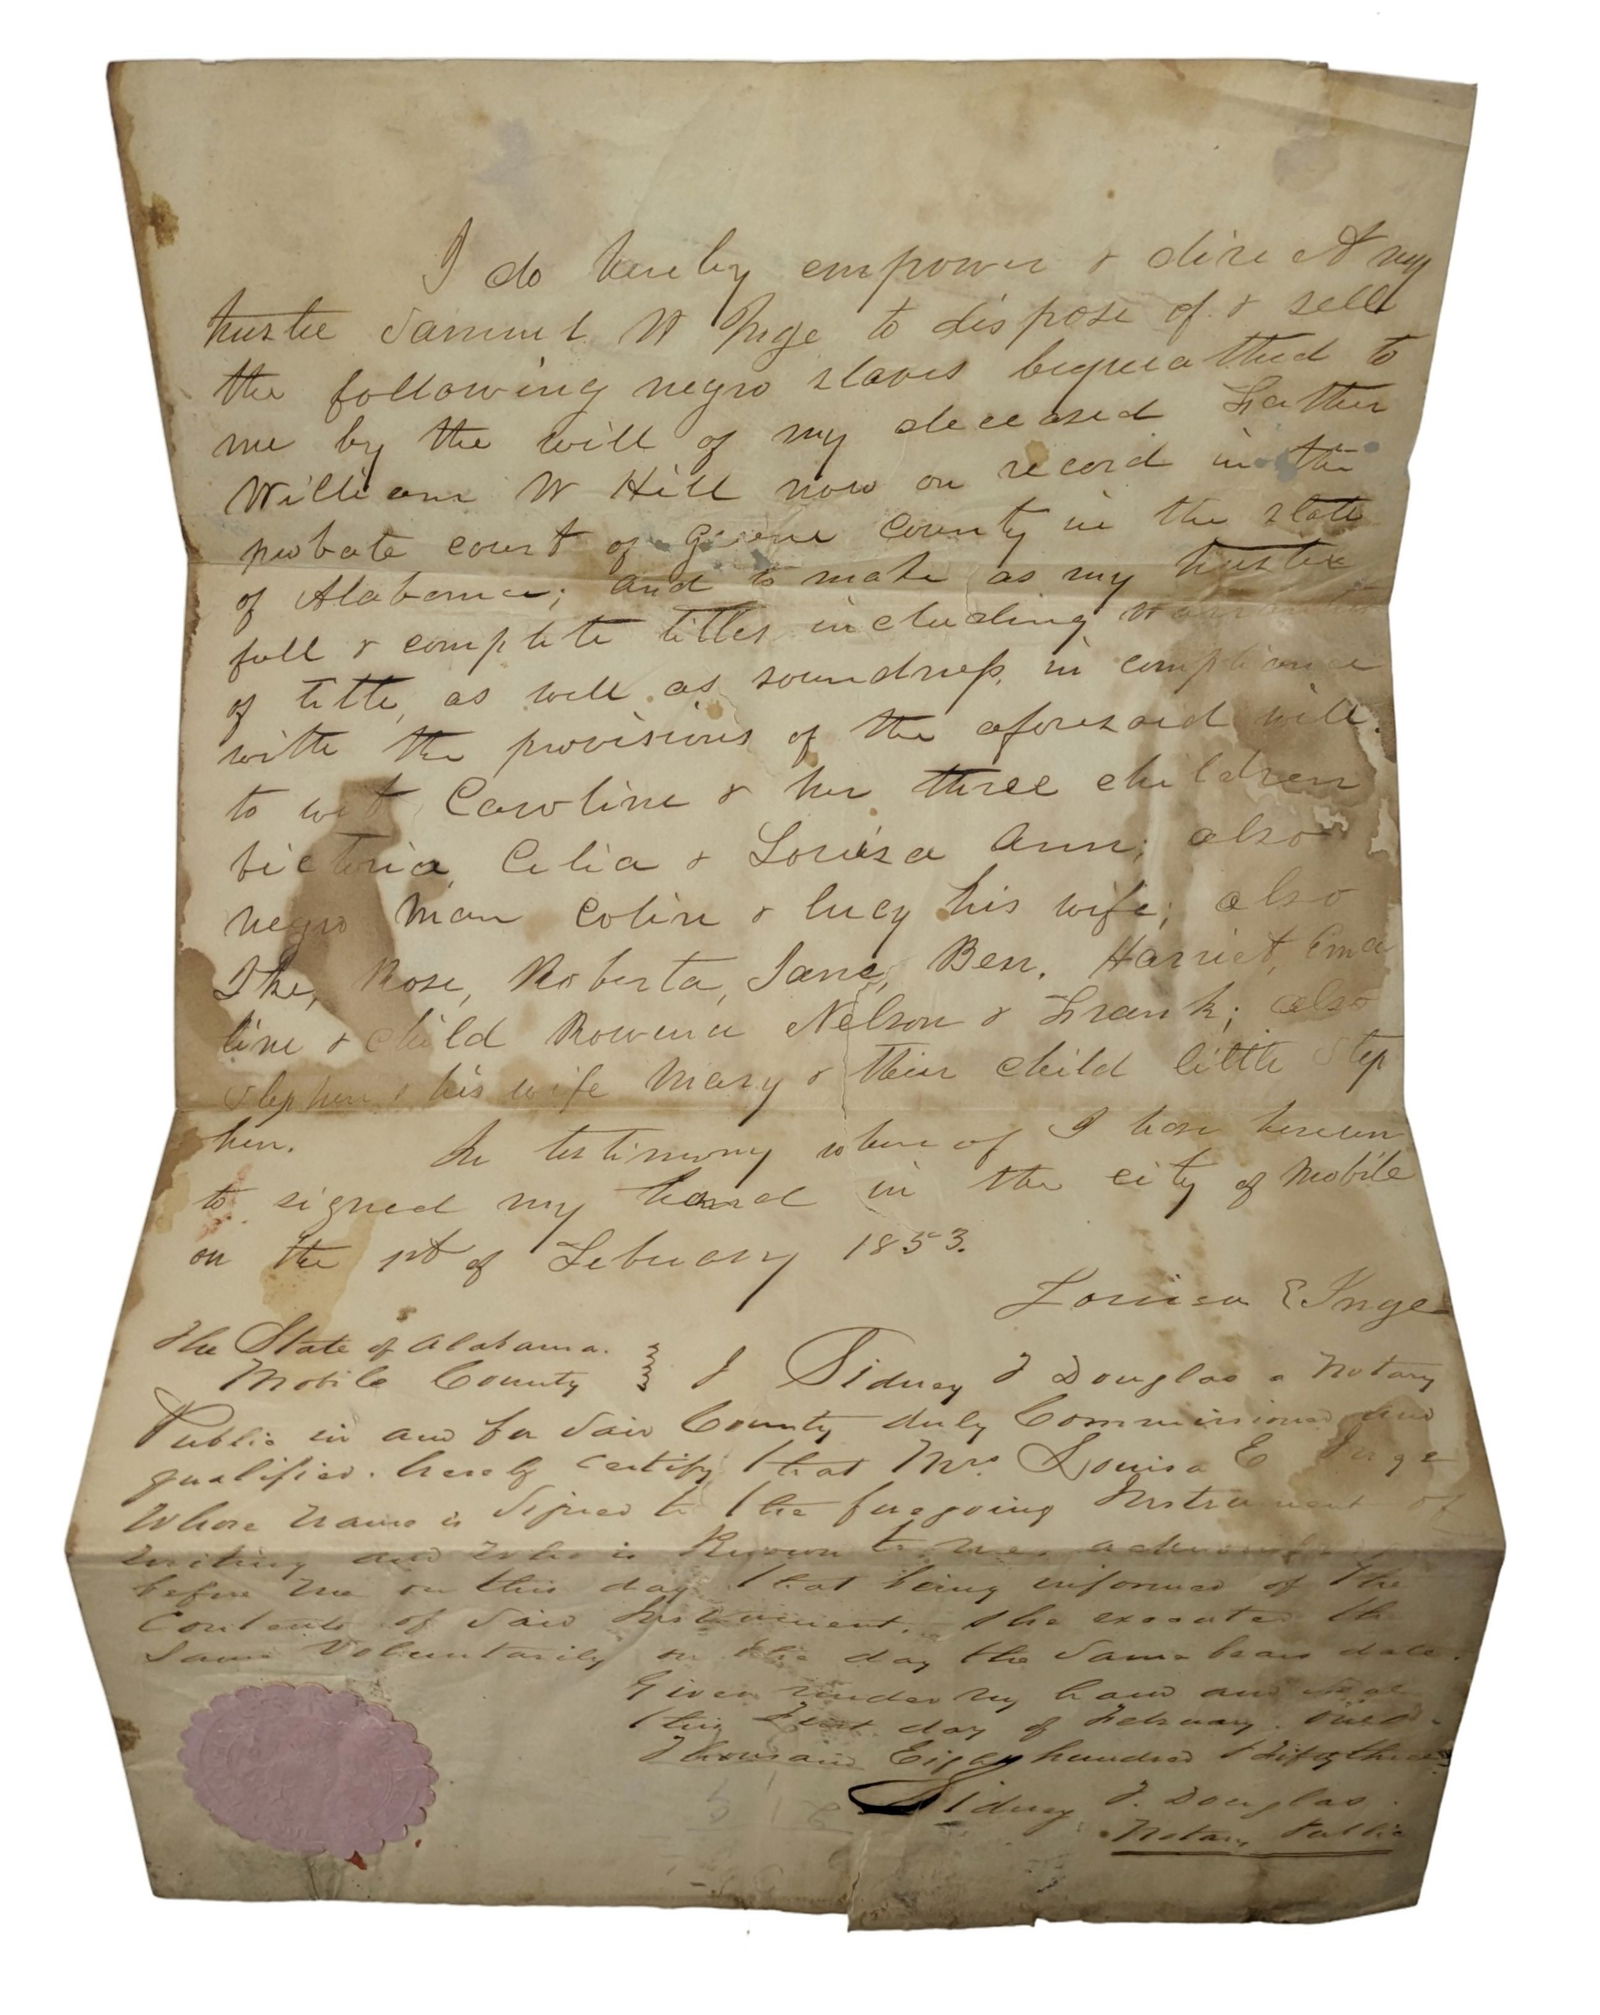 I do hereby empower & direct my
trustee Samuel W Inge to dispose of & sell
the following negro slaves bequeathed to
me by the will of my deceased Father
William W Hill now on record in the
probate court of Greene County in the state
of Alabama; and to make as my trustee
full & complete titles including warranties
of title, as well as soundness, in compliance
with the provisions of the aforesaid will.
to wit Caroline & her three children
Victoria, Celia & Louisa Ann; also
negro man Colin & Lucy his wife; also
Ike, Rose, Roberta, Jane, Ben, Harriet, Ema
line & child Rowena Nelson & Frank; also
Stephen & his wife Mary & their child little Step
hen. In testimony whereof I have hereun
to signed my hand in the city of Mobile
on the 1st of February 1853.
Louisa E Inge
The State of Alabama.
Mobile County } I Sidney T Douglas a Notary
Public in and for Said County duly Commissioned and
qualified. hereby certify that Mrs Louisa E Inge
Whose name is Signed to the foregoing Instrument of
writing and who is Known to me, acknowledged
before me on this day that being informed of the
Contents of Said Instrument. She executed the
Same Voluntarily on the day the Same bears date.
Given under my hand and seal
this First day of February. One
Thousand Eight hundred & Fifty three
Sidney T. Douglas.
Notary Public